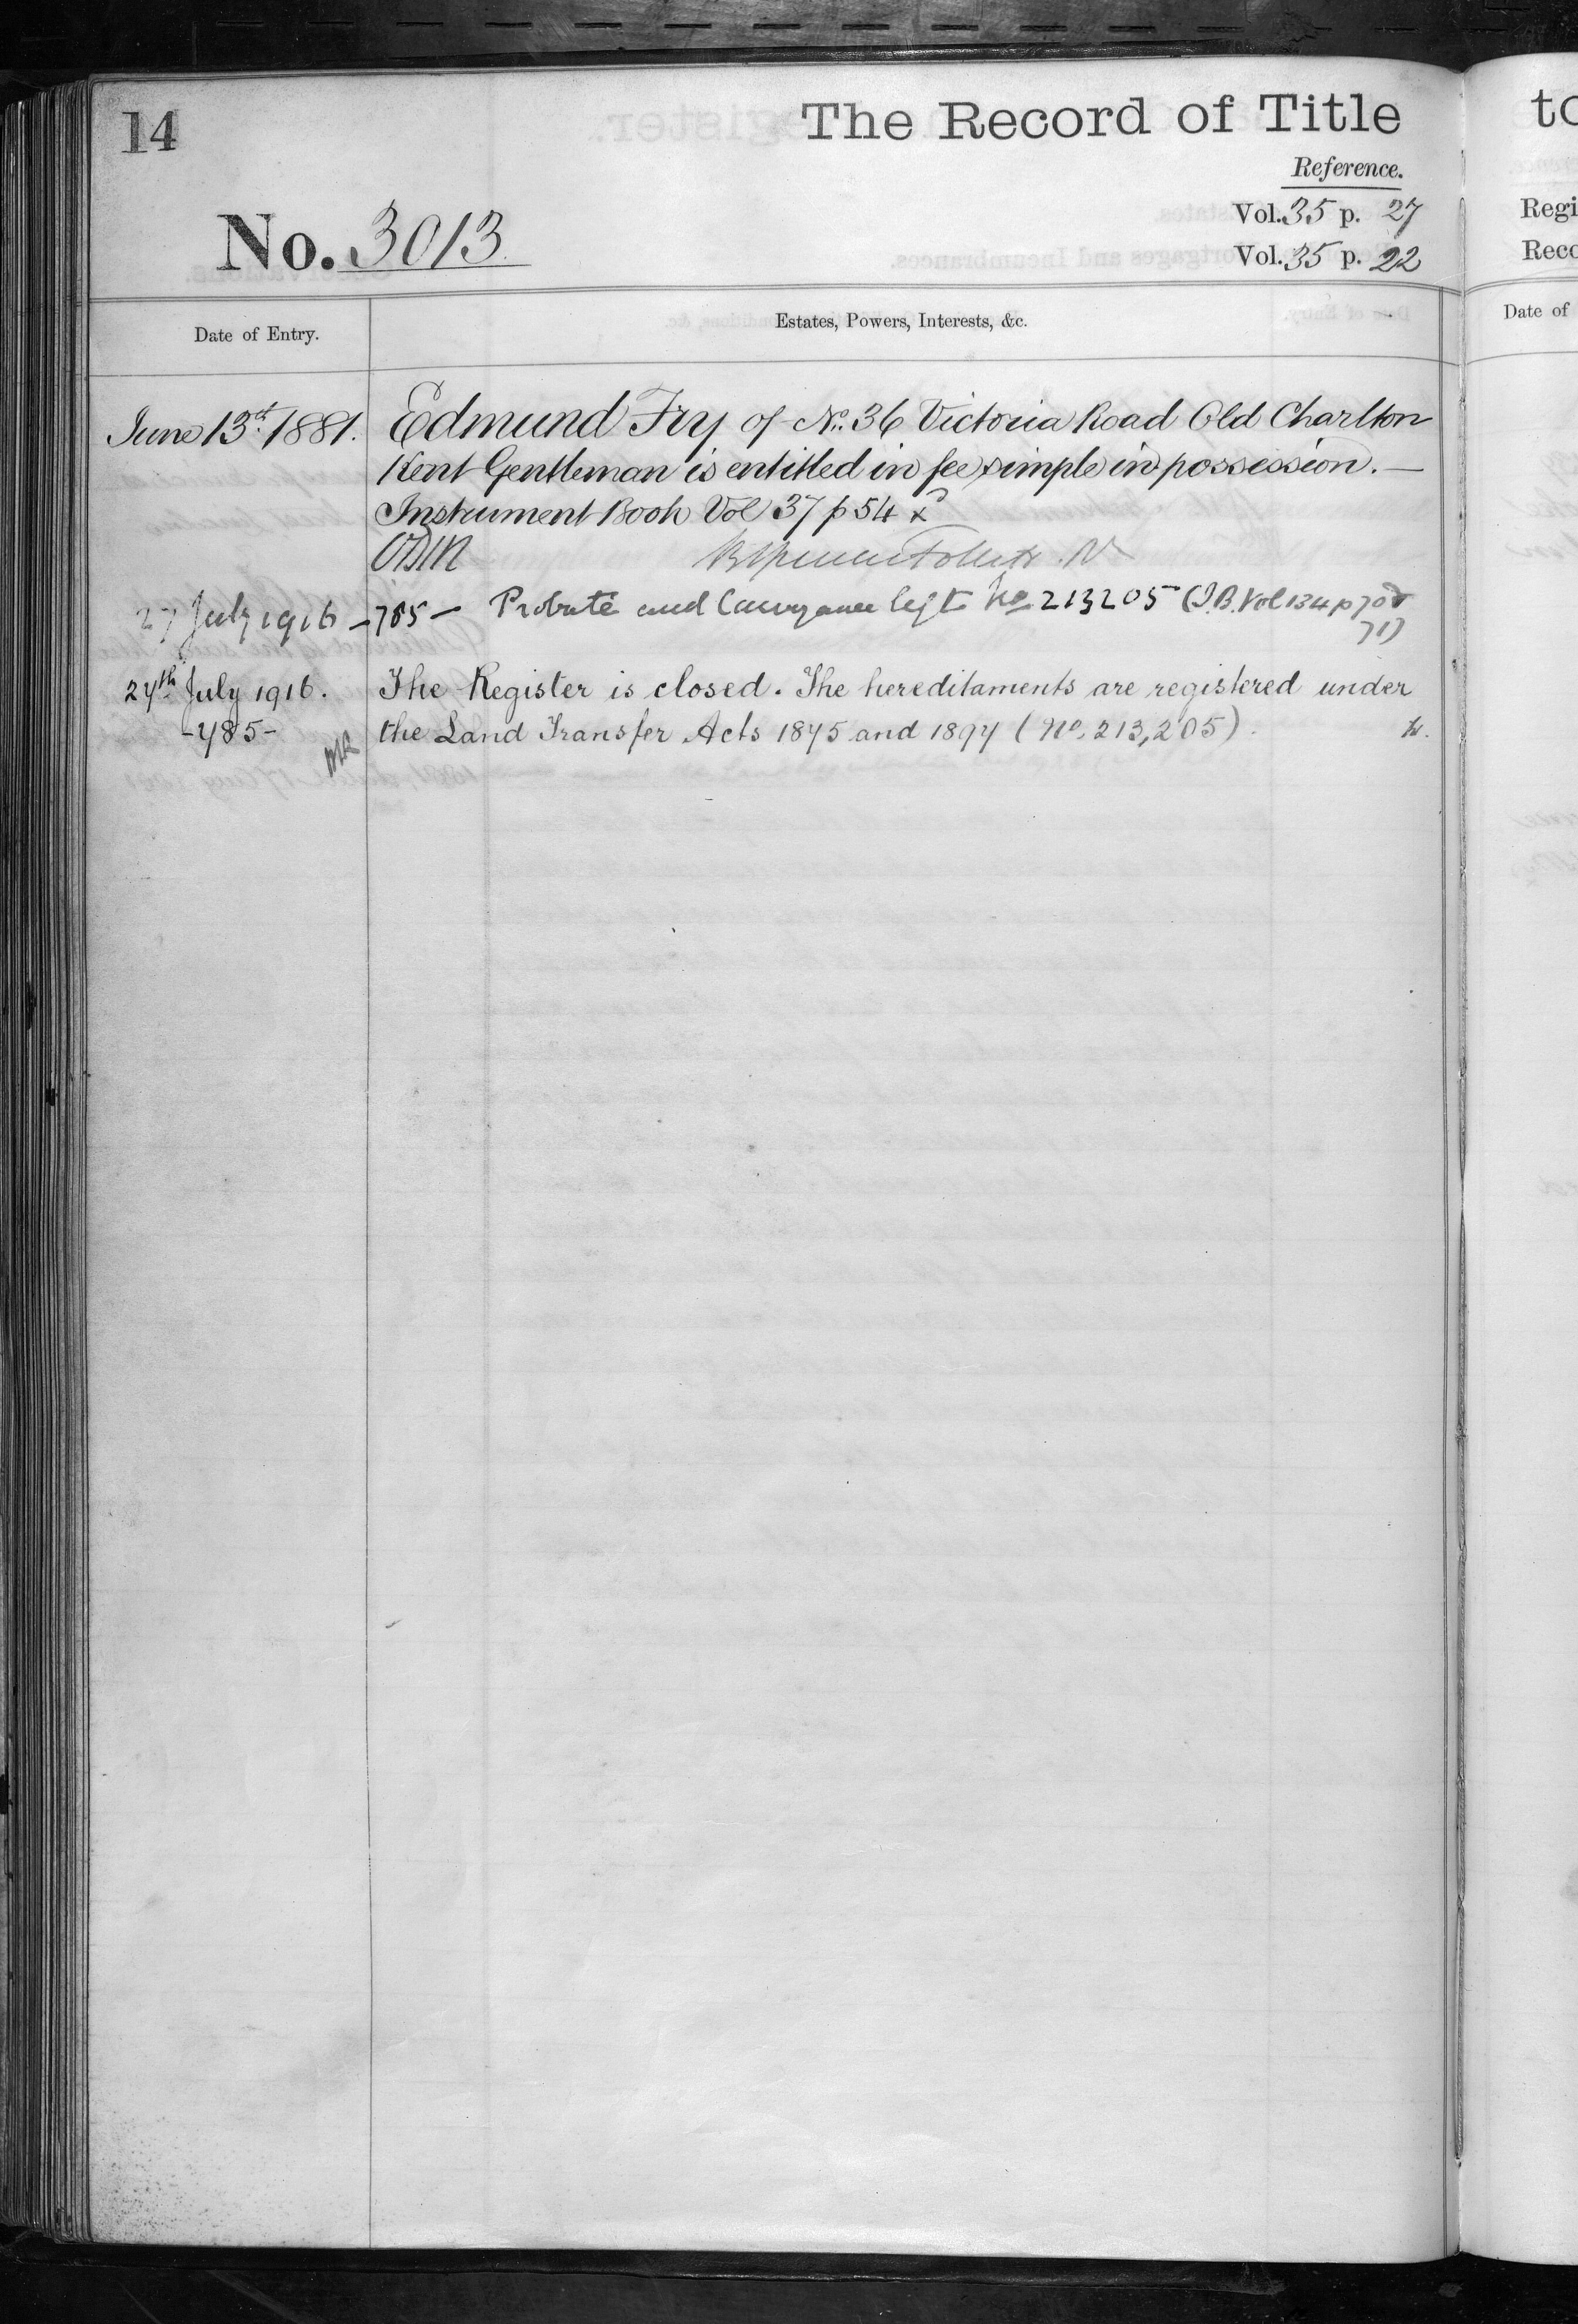 14
The Record of Title
Reference.
Vol. 35 p. 27
No. 3013.
Vol. 35 p. 22
Date of Entry.
Estates, Powers, Interests, &c.
June 13th 1881. Edmund Fry of No. 36 Victoria Road Old Charlton
Kent Gentleman is entitled in fee simple in possession. —
Instrument Book Vol 37 p 54
27 July 1916 — 785 — Probate and Conveyance left No 213205 (I.B. Vol 134 p 70 &
71)
27th July 1916. The Register is closed. The hereditaments are registered under
-785- the Land Transfer Acts 1875 and 1897 (No. 213,205).
to
Regi
Reco
Date of